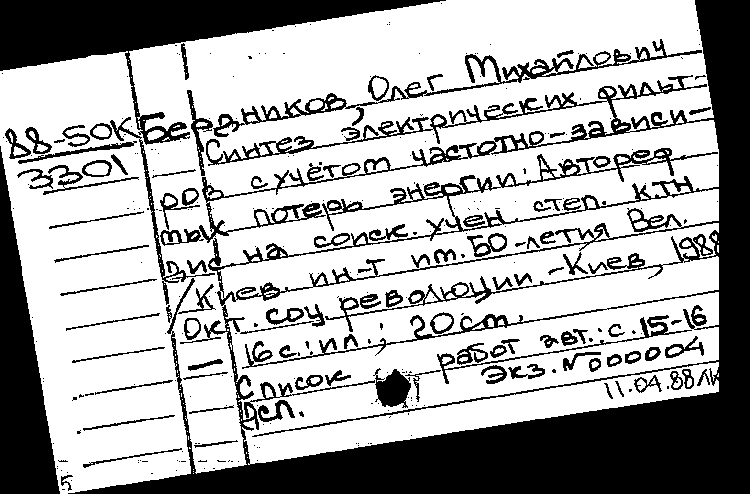 88-50К
3301
Бердников, Олег Михайлович
Синтез электрических фильт-
ров с учётом частотно-зависи-
мых потерь энергии: Автореф.
дис на соиск. учен степ. к.т.н
/Киев. ин-т им. 50-летия Вел.
Окт. соц революции.-Киев, 1988
16 с.: ил.; 20 см.
Список работ авт.: с. 15-16
Дсп. Экз. N 000004
11.04.88
5